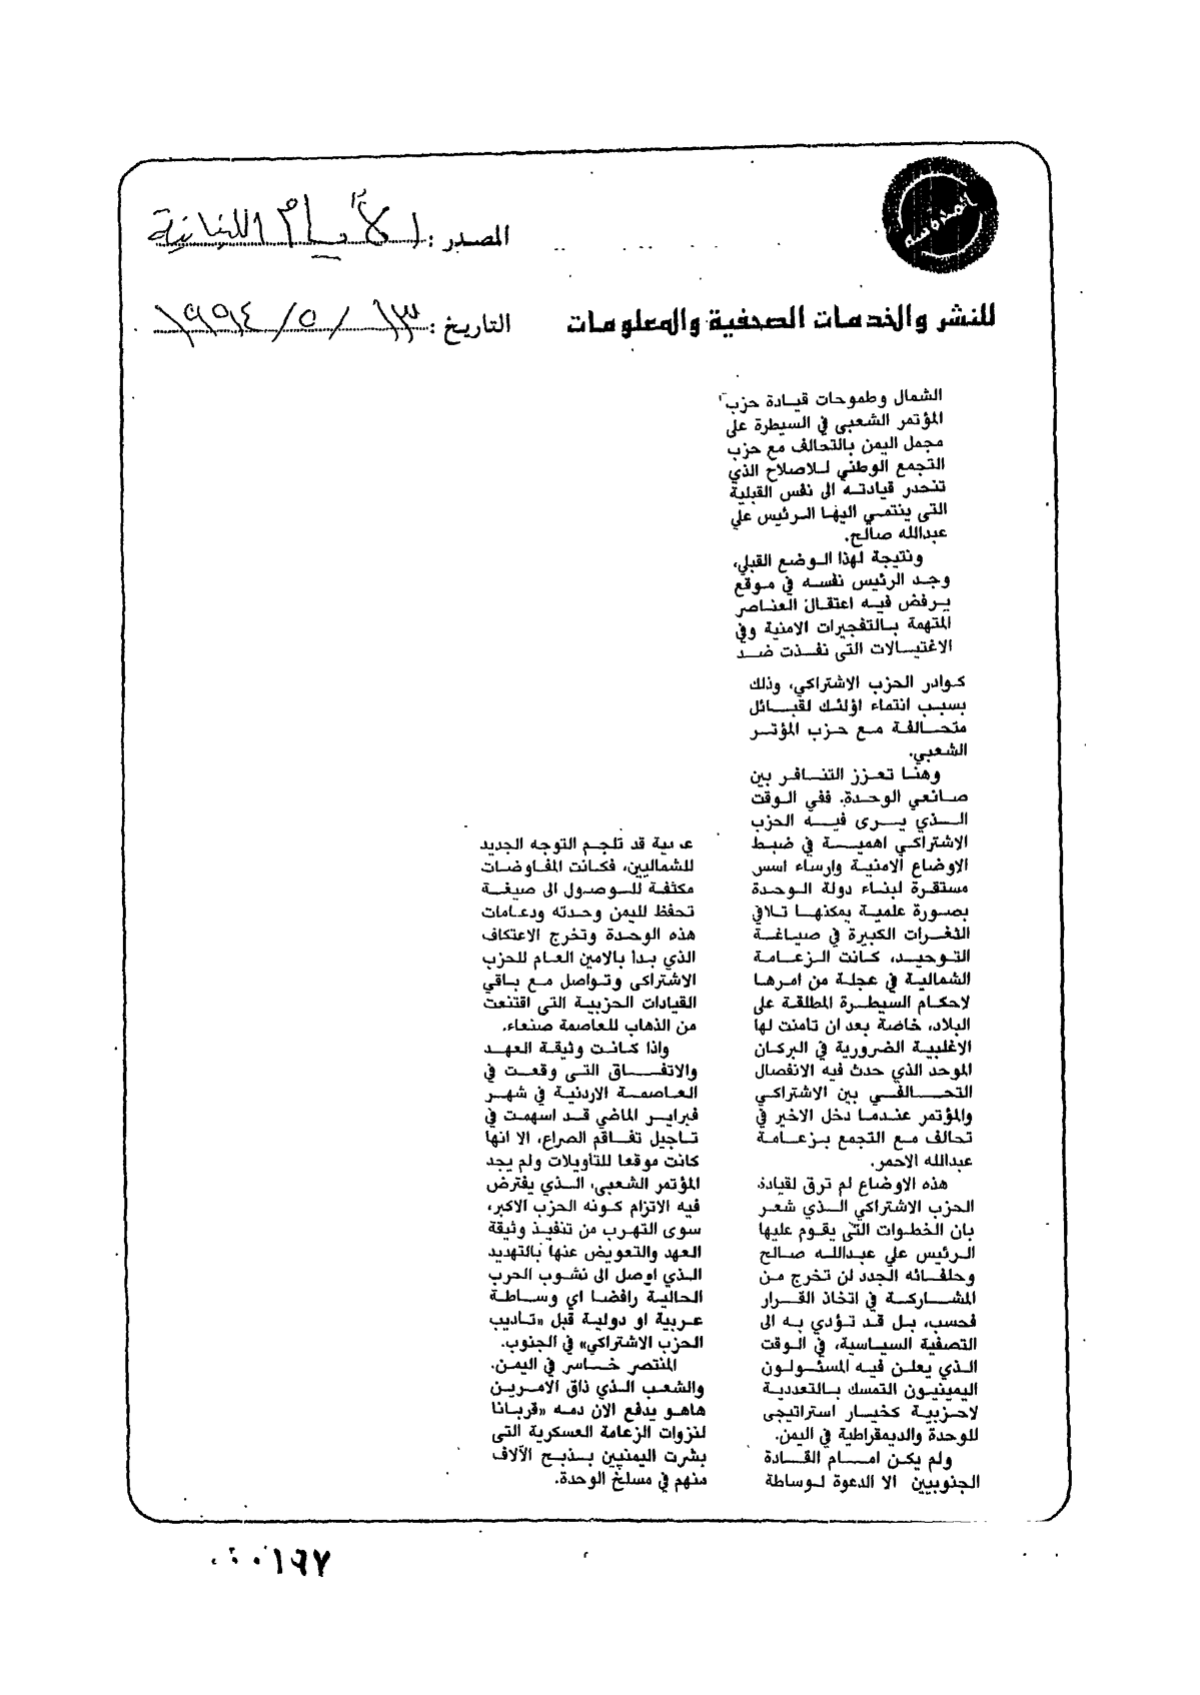 المصدر : الأيام اللبنانية
للنشر والخدمات الصحفية والمعلومات
التاريخ : ١٣ / ٥ / ١٩٩٤
الشمال وطموحات قيادة حزب
المؤتمر الشعبي في السيطرة على
مجمل اليمن بالتحالف مع حزب
التجمع الوطني للاصلاح الذي
تنحدر قيادته الى نفس القبلية
التي ينتمي اليها الرئيس علي
عبدالله صالح.
ونتيجة لهذا الوضع القبلي،
وجد الرئيس نفسه في موقع
يرفض فيه اعتقال العناصر
المتهمة بالتفجيرات الامنية وفي
الاغتيالات التي نفذت ضد
كوادر الحزب الاشتراكي، وذلك
بسبب انتماء اؤلئك لقبائل
متحالفة مع حزب المؤتمر
الشعبي.
وهنا تعزز التنافر بين
صانعي الوحدة. ففي الوقت
الذي يرى فيه الحزب
الاشتراكي اهمية في ضبط
الاوضاع الامنية وارساء اسس
مستقرة لبناء دولة الوحدة
بصورة علمية يمكنها تلافي
الثغرات الكبيرة في صياغة
التوحيد، كانت الزعامة
الشمالية في عجلة من امرها
لاحكام السيطرة المطلقة على
البلاد، خاصة بعد ان تامنت لها
الاغلبية الضرورية في البركان
الموحد الذي حدث فيه الانفصال
التحالفي بين الاشتراكي
والمؤتمر عندما دخل الاخير في
تحالف مع التجمع بزعامة
عبدالله الاحمر.
هذه الاوضاع لم ترق لقيادة
الحزب الاشتراكي الذي شعر
بان الخطوات التي يقوم عليها
الرئيس علي عبدالله صالح
وحلفائه الجدد لن تخرج من
المشاركة في اتخاذ القرار
فحسب، بل قد تؤدي به الى
التصفية السياسية، في الوقت
الذي يعلن فيه المسئولون
اليمينيون التمسك بالتعددية
لاحزبية كخيار استراتيجي
للوحدة والديمقراطية في اليمن.
ولم يكن امام القادة
الجنوبيين الا الدعوة لوساطة
عربية قد تلجم التوجه الجديد
للشماليين، فكانت المفاوضات
مكثفة للوصول الى صيغة
تحفظ لليمن وحدته ودعامات
هذه الوحدة وتخرج الاعتكاف
الذي بدا بالامين العام للحزب
الاشتراكي وتواصل مع باقي
القيادات الحزبية التي اقتنعت
من الذهاب للعاصمة صنعاء.
واذا كانت وثيقة العهد
والاتفاق التي وقعت في
العاصمة الاردنية في شهر
فبراير الماضي قد اسهمت في
تاجيل تفاقم الصراع، الا انها
كانت موقعا للتاويلات ولم يجد
المؤتمر الشعبي، الذي يفترض
فيه الاتزام كونه الحزب الاكبر،
سوى التهرب من تنفيذ وثيقة
العهد والتعويض عنها بالتهديد
الذي اوصل الى نشوب الحرب
الحالية رافضا اي وساطة
عربية او دولية قبل «تاديب
الحزب الاشتراكي» في الجنوب.
المنتصر خاسر في اليمن.
والشعب الذي ذاق الامرين
هاهو يدفع الان دمه «قربانا
لنزوات الزعامة العسكرية التي
بشرت اليمنيين بذبح الآلاف
منهم في مسلخ الوحدة.
١٦٧